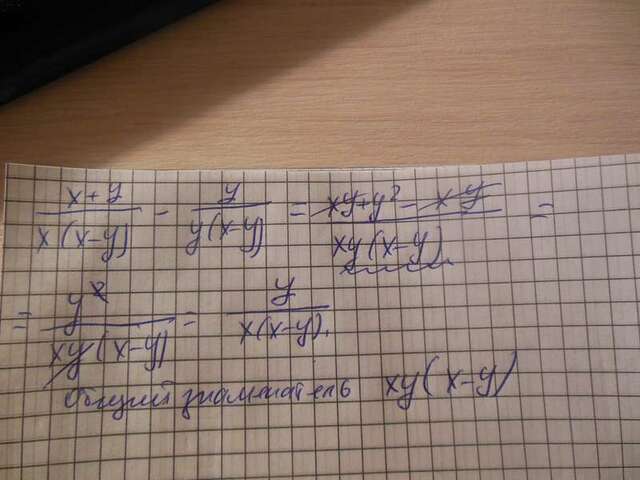 x+y/x(x-y) - y/y(x-y) = xy+y²-xy/xy(x-y) =
= y²/xy(x-y) = y/x(x-y).
Общий знаменатель xy(x-y)